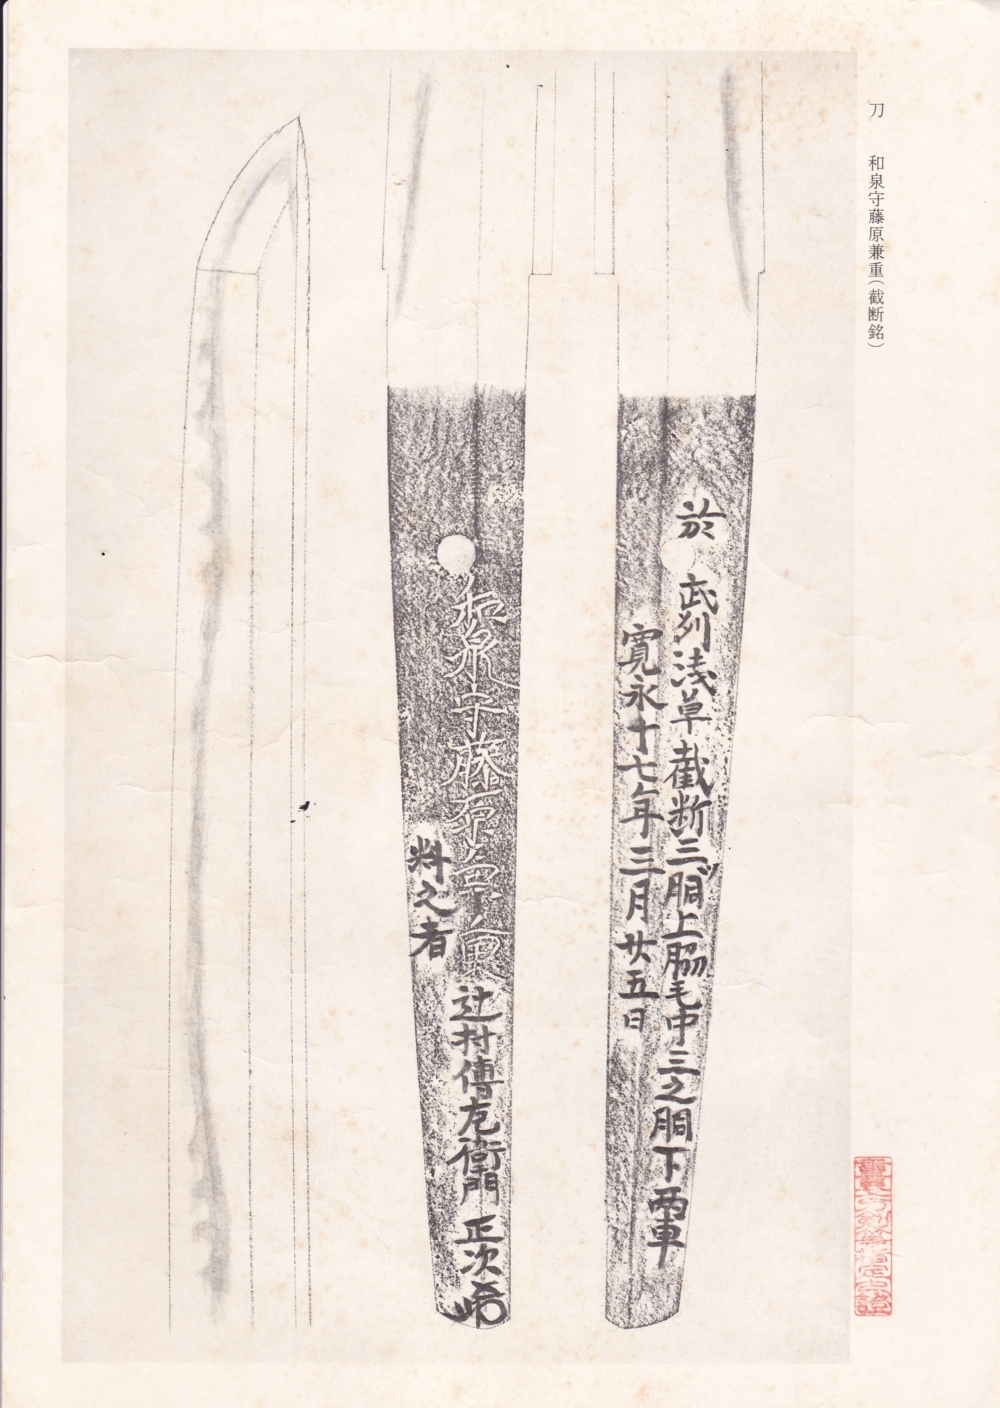 刀　和泉守藤原兼重(截断銘)
於武列浅草截断三ツ胴上脇毛中三之胴下両車
寛永十七年三月廿五日
和泉守藤原兼重
辻村傳右衛門 正次
料之者